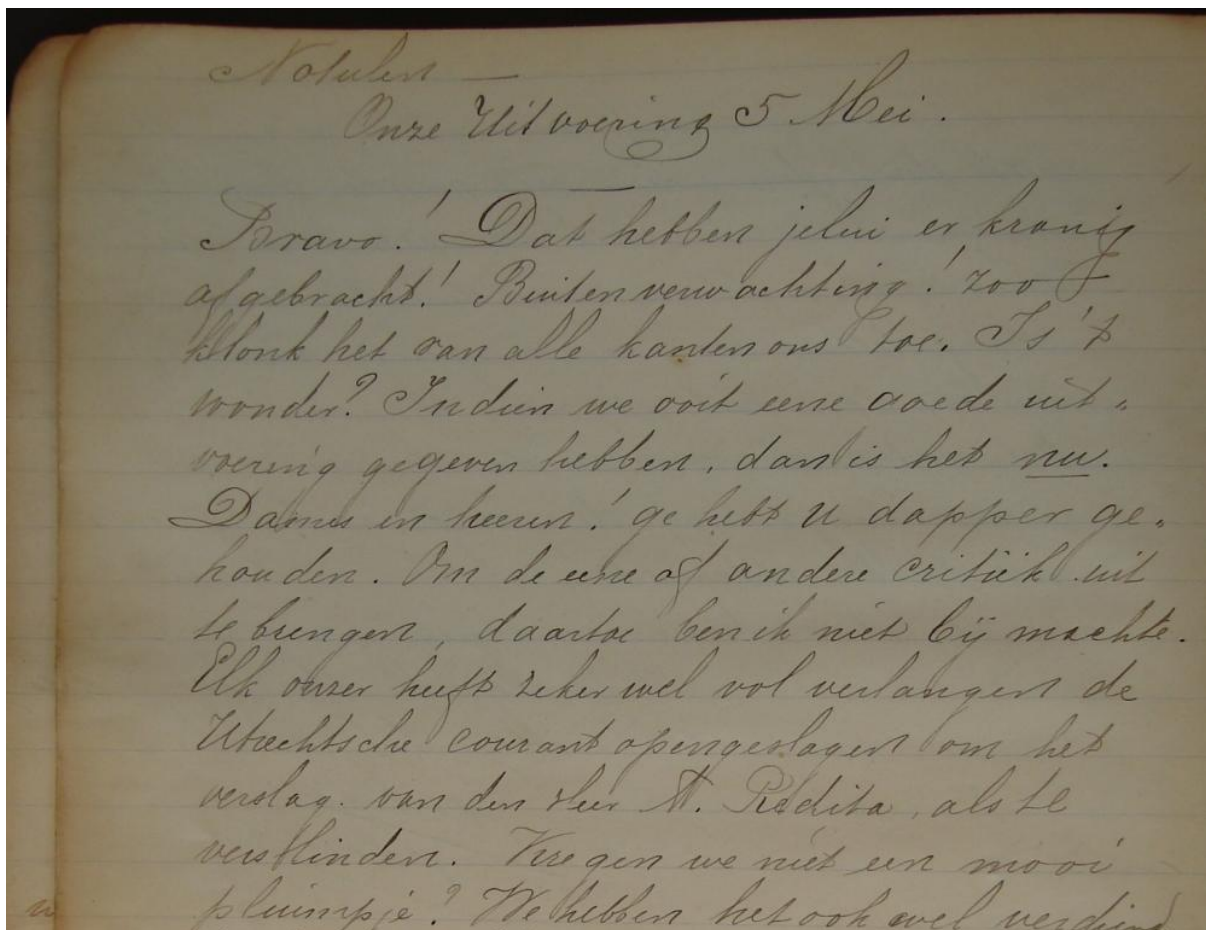 Notulen —
Onze Uitvoering 5 Mei.
Bravo! Dat hebben jelui er kranig
afgebracht! Buiten verwachting! zoo
klonk het van alle kanten ons toe. Is 't
wonder? Indien we ooit eene goede uit„
voering gegeven hebben, dan is het nu.
Dames en heeren! ge hebt U dapper ge„
houden. Om de eene of andere critiek uit
te brengen, daartoe ben ik niet bij machte.
Elk onzer heeft zeker wel vol verlangen de
Utrechtsche courant opengeslagen om het
verslag van den Heer A. Redita, als te
verslinden. Kregen we niet een mooi
pluimpje? We hebben het ook wel verdiend